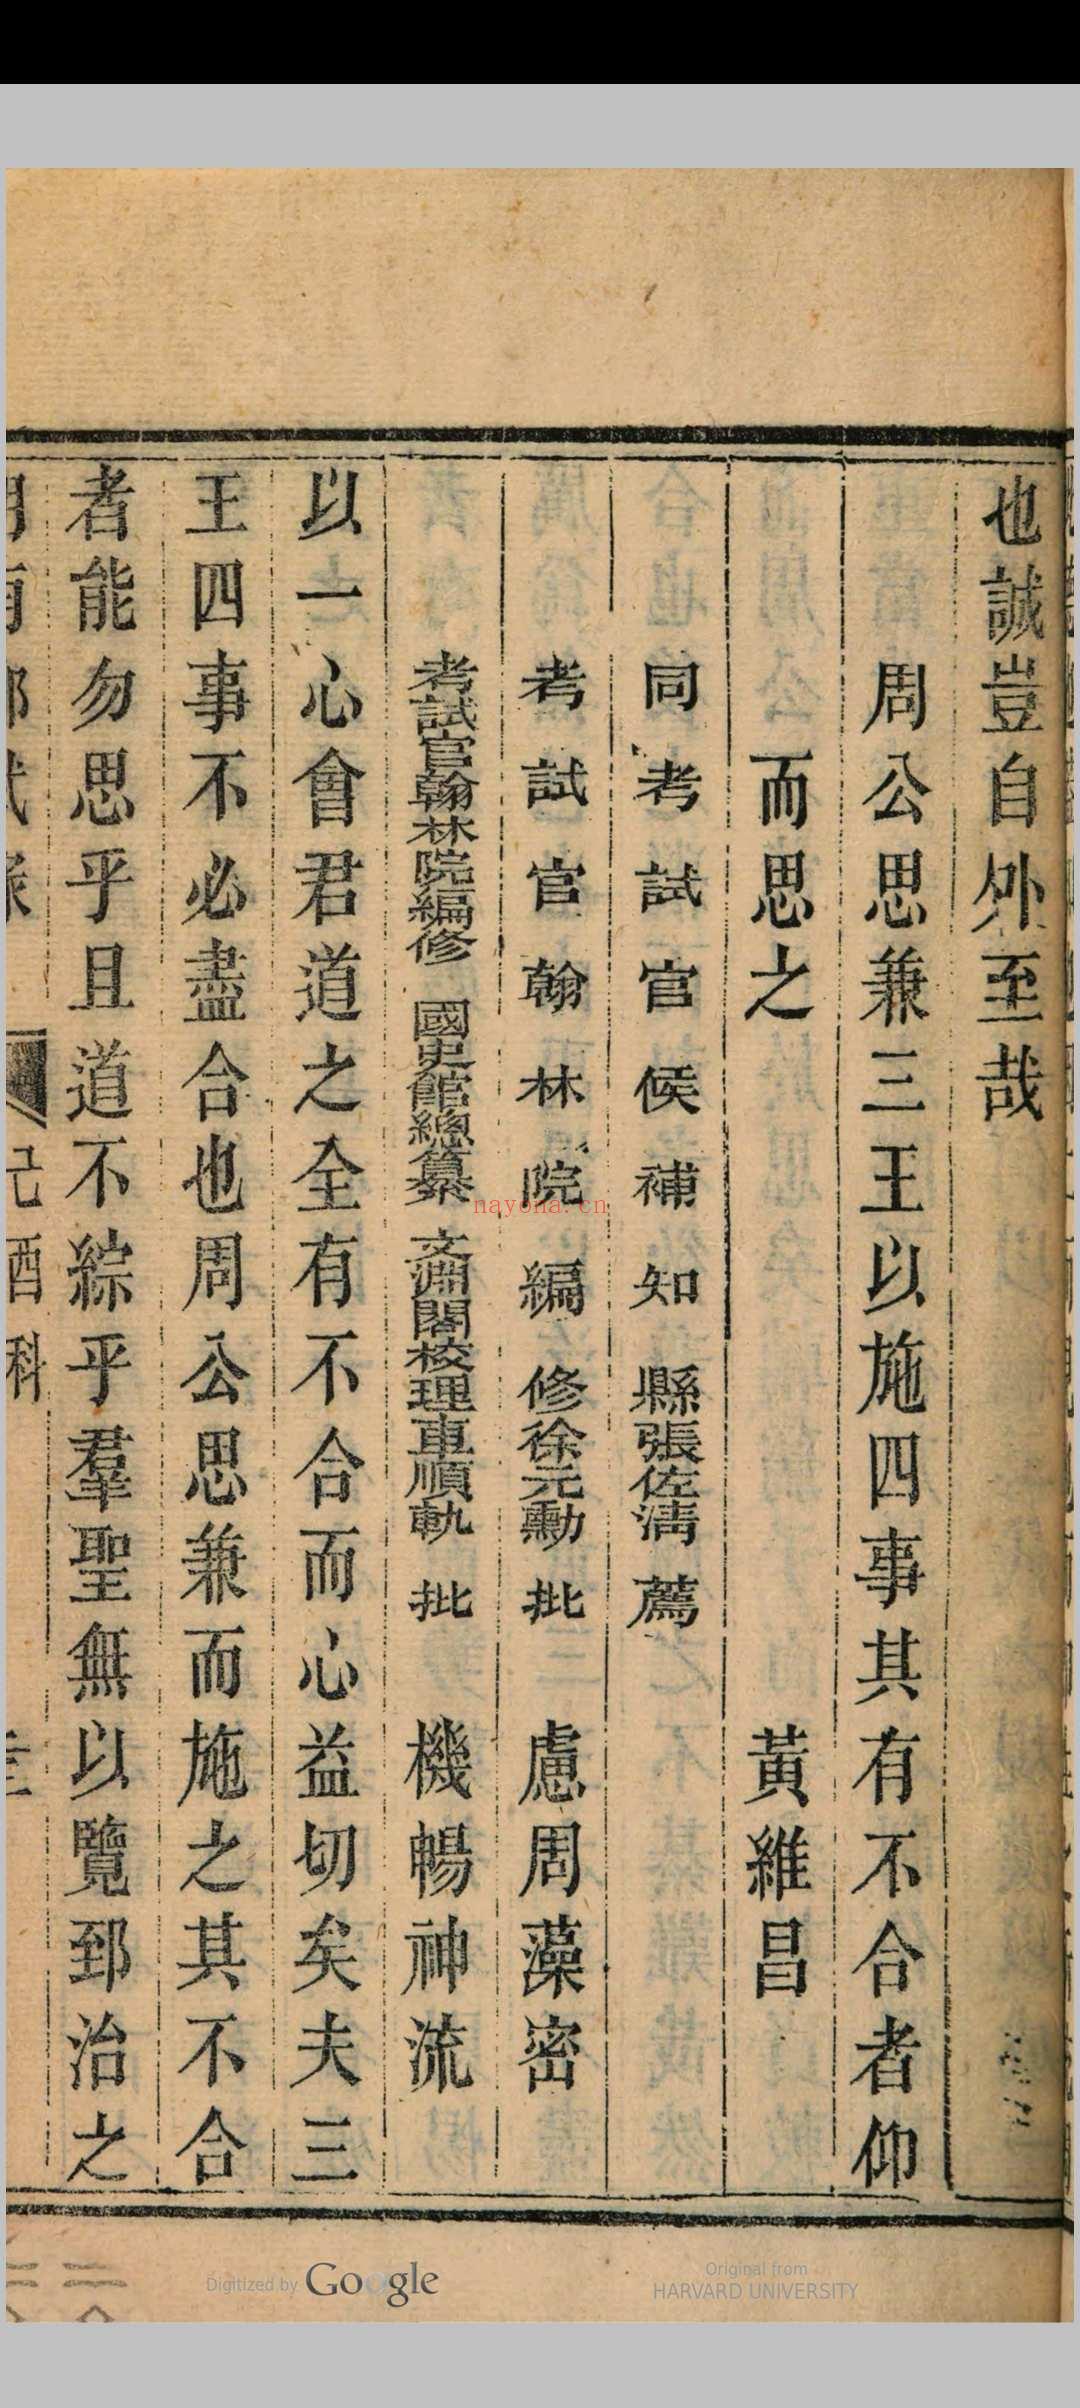 也誠豈自外至哉
周公思兼三王以施四事其有不合者仰
而思之 黃維昌
同考試官候補知縣張佐清薦
考試官翰林院編修徐元勳批 慮周藻密
考試官翰林院編修 國史館總纂 文淵閣校理車順軌批 機暢神流
以一心會君道之全有不合而心益切矣夫三
王四事不必盡合也周公思兼而施之其不合
者能勿思乎且道不綜乎羣聖無以覽郅治之
己酉科
nayona.cn
Digitized by Google
Original from
HARVARD UNIVERSITY